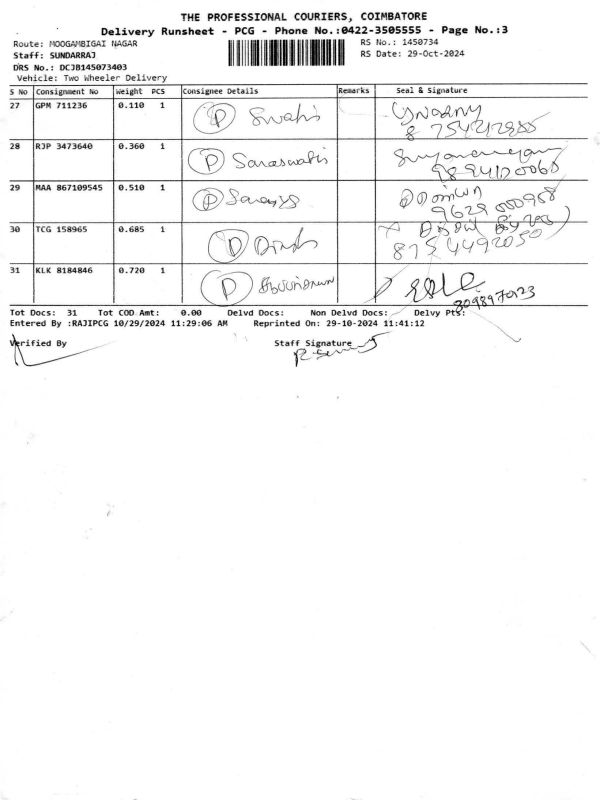 THE PROFESSIONAL COURIERS, COIMBATORE
Delivery Runsheet - PCG - Phone No.:0422-3505555 - Page No.:3
Route: MOOGAMBIGAI NAGAR RS No.: 1450734
Staff: SUNDARRAJ RS Date: 29-Oct-2024
DRS No.: DCJB145073403
Vehicle: Two Wheeler Delivery
S No Consignment No Weight PCS Consignee Details Remarks Seal & Signature
27 GPM 711236 0.110 1 P Swathi
28 RJP 3473640 0.360 1 P Saraswathi
29 MAA 867109545 0.510 1 P
9629 000958
30 TCG 158965 0.685 1 D
8754492050
31 KLK 8184846 0.720 1 P
8098970123
Tot Docs: 31 Tot COD Amt: 0.00 Delvd Docs: Non Delvd Docs: Delvy Pts:
Entered By :RAJIPCG 10/29/2024 11:29:06 AM Reprinted On: 29-10-2024 11:41:12
Verified By Staff Signature